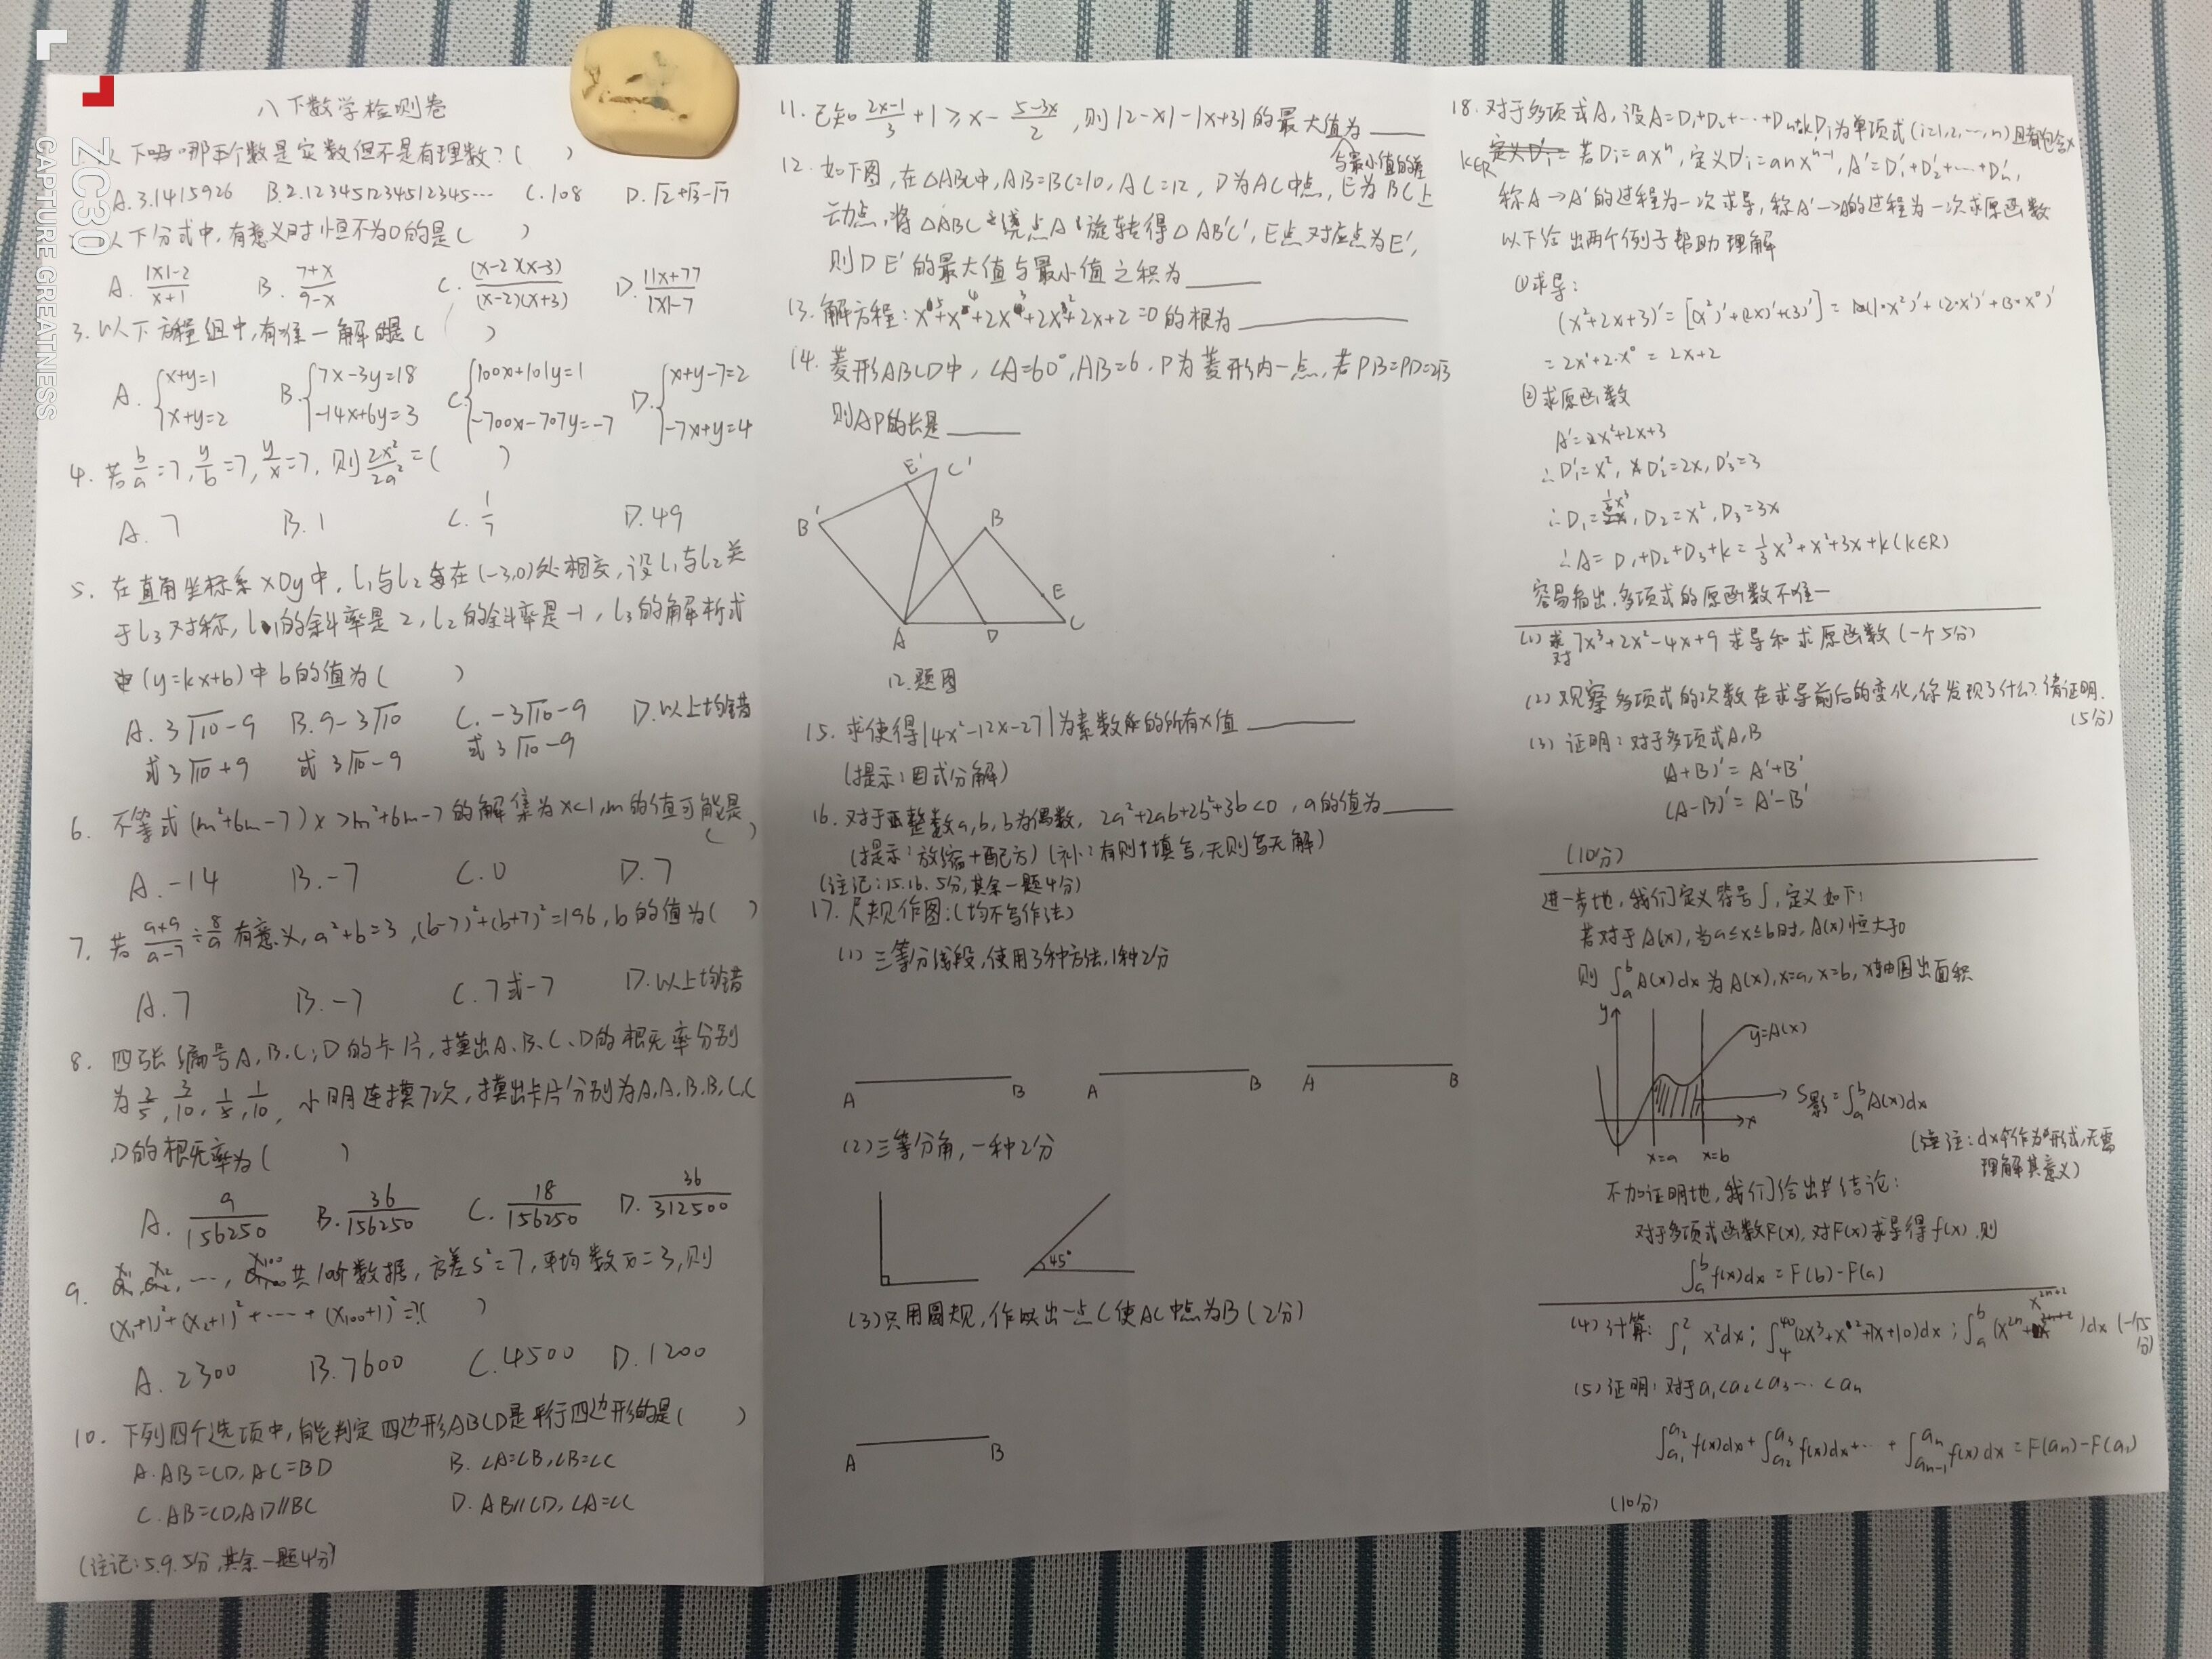 ZC30
CAPTURE GREATNESS
八下数学检测卷
以下哪个数是实数但不是有理数?( )
A.3.1415926 B.2.123451234512345… C.108 D.√2+√3-√7
以下分式中,有意义时恒不为0的是( )
A. (|x|-2)/(x+1) B. (7+x)/(9-x) C. (x-2)(x-3)/(x-2)(x+3) D. (11x+77)/(|x|-7)
3. 以下方程组中,有唯一解的是( )
A. {x+y=1 x+y=2 B. {7x-3y=18 -14x+6y=3 C. {100x+101y=1 -700x-707y=-7 D. {x+y-7=2 -7x+y=4
4. 若b/a=7, y/b=7, y/x=7, 则2x²/2a²=( )
A. 7 B. 1 C. 1/7 D. 49
5. 在直角坐标系xOy中, l₁与l₂在(-3,0)处相交, 设l₁与l₂关
于l₃对称, l₁的斜率是2, l₂的斜率是-1, l₃的解析式
(y=kx+b)中b的值为( )
A. 3√10-9 B. 9-3√10 C. -3√10-9 D. 以上均错
或3√10+9 或3√10-9 或3√10-9
6. 不等式(m²+6m-7)x>m²+6m-7的解集为x<1, m的值可能是
( )
A. -14 B. -7 C. 0 D. 7
7. 若(a+9)/(a-7)÷8/a有意义, a²+b=3, (b-7)²+(b+7)²=196, b的值为( )
A. 7 B. -7 C. 7或-7 D. 以上均错
8. 四张编号A,B,C,D的卡片, 摸出A、B、C、D的概率分别
为2/5, 3/10, 1/5, 1/10, 小明连摸7次, 摸出卡片分别为A,A,B,B,C,C
D的概率为( )
A. 9/156250 B. 36/156250 C. 18/156250 D. 36/312500
9. x₁, x₂, …, x₁₀₀共100个数据, 方差s²=7, 平均数x=3, 则
(x₁+1)²+(x₂+1)²+…+(x₁₀₀+1)²=?( )
A. 2300 B. 7600 C. 4500 D. 1200
10. 下列四个选项中, 能判定四边形ABCD是平行四边形的是( )
A. AB=CD, AC=BD B. ∠A=∠B, ∠B=∠C
C. AB=CD, AD//BC D. AB//CD, ∠A=∠C
(注记:5.9.5分,其余一题4分)
11. 已知(2x-1)/3+1≥x-(5-3x)/2, 则|2-x|-|x+3|的最大值为____
与最小值的差
12. 如下图, 在△ABC中, AB=BC=10, AC=12, D为AC中点, E为BC上
动点, 将△ABC绕点A旋转得△AB'C', E点对应点为E',
则DE'的最大值与最小值之积为____
13. 解方程: x⁵+x⁴+2x³+2x²+2x+2=0的根为____
14. 菱形ABCD中, ∠A=60°, AB=6. P为菱形内一点, 若PB=PD=2√3
则AP的长是____
E' C'
B' B
E
A D C
12.题图
15. 求使得|4x²-12x-27|为素数的所有x值____
(提示:因式分解)
16. 对于整数a,b,b为偶数, 2a²+2ab+2b²+3b<0, a的值为____
(提示:放缩+配方)(补:有则填写,无则写无解)
(注记:15.16.5分,其余一题4分)
17. 尺规作图:(均不写作法)
(1) 三等分线段,使用3种方法,1种2分
A B A B A B
(2) 三等分角,一种2分
45°
(3) 只用圆规, 作出一点C使AC中点为B(2分)
A B
18. 对于多项式A, 设A=D₁+D₂+…+Dₙ+k, Dᵢ为单项式(i=1,2,…,n)且都包含x
k∈R 若Dᵢ=axⁿ, 定义D'ᵢ=anxⁿ⁻¹, A'=D₁'+D₂'+…+Dₙ',
称A→A'的过程为一次求导, 称A'→A的过程为一次求原函数
以下给出两个例子帮助理解
①求导:
(x²+2x+3)'=[(x²)'+(2x)'+(3)']=(1·x²)'+(2·x¹)'+(3·x⁰)'
=2x¹+2·x⁰=2x+2
②求原函数
A'=x²+2x+3
∴D₁'=x², D₂'=2x, D₃'=3
∴D₁=⅓x³, D₂=x², D₃=3x
∴A=D₁+D₂+D₃+k=⅓x³+x²+3x+k(k∈R)
容易指出,多项式的原函数不唯一
(1) 对7x³+2x²-4x+9求导和求原函数(一个5分)
(2) 观察多项式的次数在求导前后的变化,你发现了什么?请证明.
(5分)
(3) 证明:对于多项式A,B
(A+B)'=A'+B'
(A-B)'=A'-B'
(10分)
进一步地,我们定义符号∫,定义如下:
若对于A(x), 当a≤x≤b时, A(x)恒大于0
则∫ₐᵇA(x)dx为A(x), x=a, x=b, x轴围出面积
y y=A(x)
S影=∫ₐᵇA(x)dx
x
x=a x=b
(注:dx作为形式,无需
理解其意义)
不加证明地,我们给出结论:
对于多项式函数F(x), 对F(x)求导得f(x), 则
∫ₐᵇf(x)dx=F(b)-F(a)
(4) 计算: ∫₁²x²dx; ∫₄⁴⁰(2x³+x²+7x+10)dx; ∫ₐᵇ(x²ⁿ+x²ⁿ⁺²)dx
(5) 证明:对于a₁<a₂<a₃…<aₙ
∫ₐ₁ᵃ²f(x)dx+∫ₐ₂ᵃ³f(x)dx+…+∫ₐₙ₋₁ᵃⁿf(x)dx=F(aₙ)-F(a₁)
(10分)